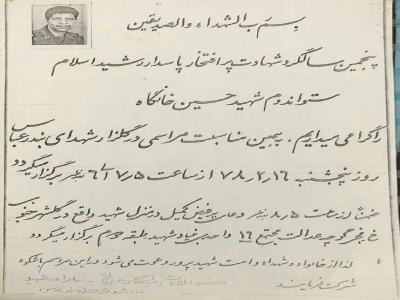 بسم رب الشهداء والصدیقین
پنجمین سالگرد شهادت پر افتخار پاسدار رشید اسلام
ستواندوم شهید حسین خانگاه
را گرامی میداریم، بهمین مناسبت مراسمی در گلزار شهدای بندرعباس
روز پنجشنبه ۷۸٫۲٫۱۶ از ساعت ۵٫۷ الی ۶ برگزار میگردد
ضمناً از ساعت ۸٫۵ دعای پرفیض کمیل در منزل شهید واقع در گلشهر
خ فجر کوچه عدالت مجتمع ۱۶ واحدی بنیاد شهید طبقه سوم برگزار میگردد
لذا از خانواده شهداء و امت شهید پرور دعوت می شود در این مراسم
شرکت فرمایند